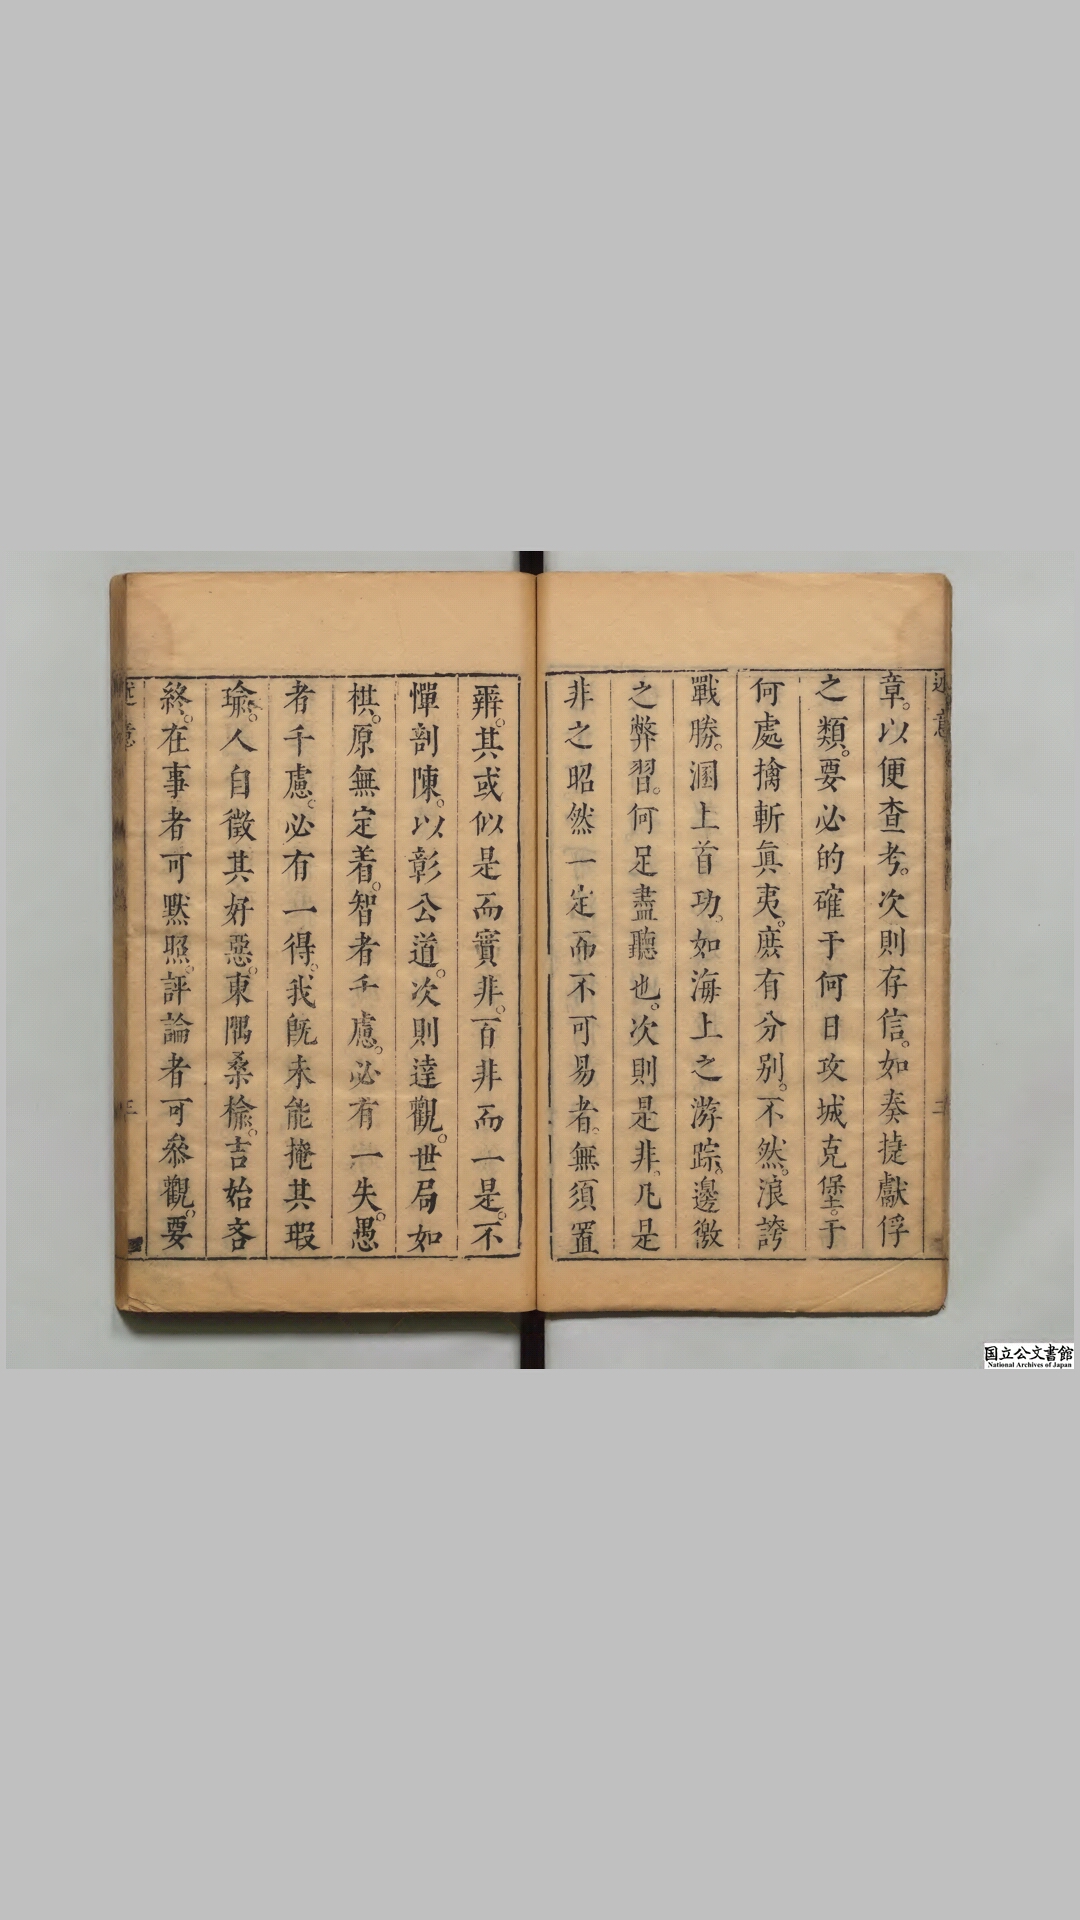 章。以便查考。次則存信。如奏捷獻俘
之類。要必的確于何日攻城克堡。于
何處擒斬眞夷。庶有分別。不然。浪誇
戰勝。溷上首功。如海上之游踪。邊徼
之弊習。何足盡聽也。次則是非。凡是
非之昭然一定而不可易者。無須置
辨。其或似是而實非。百非而一是。不
憚剖陳。以彰公道。次則達觀。世局如
棋。原無定着。智者千慮。必有一失。愚
者千慮。必有一得。我旣未能掩其瑕
瑜。人自徵其好惡。東隅桑榆。吉始吝
終。在事者可默照。評論者可叅觀。要
国立公文書館
National Archives of Japan